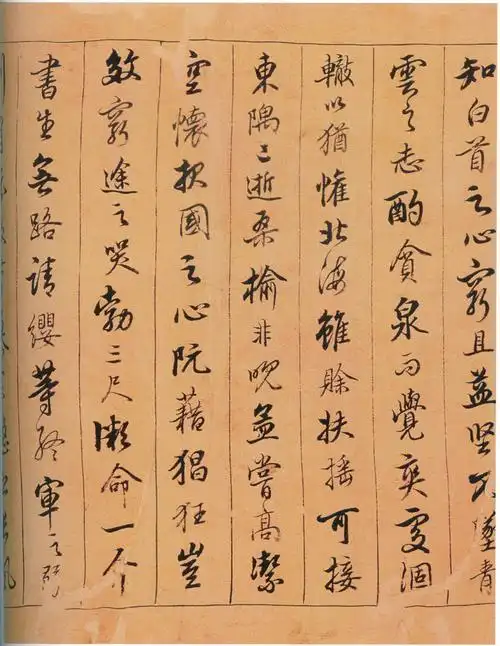 知白首之心窮且益堅不墜青
雲之志酌貪泉而覺爽處涸
轍以猶懽北海雖賒扶搖可接
東隅已逝桑榆非晚孟嘗高潔
空懷報國之心阮藉猖狂豈
效窮途之哭勃三尺微命一介
書生無路請纓等終軍之弱